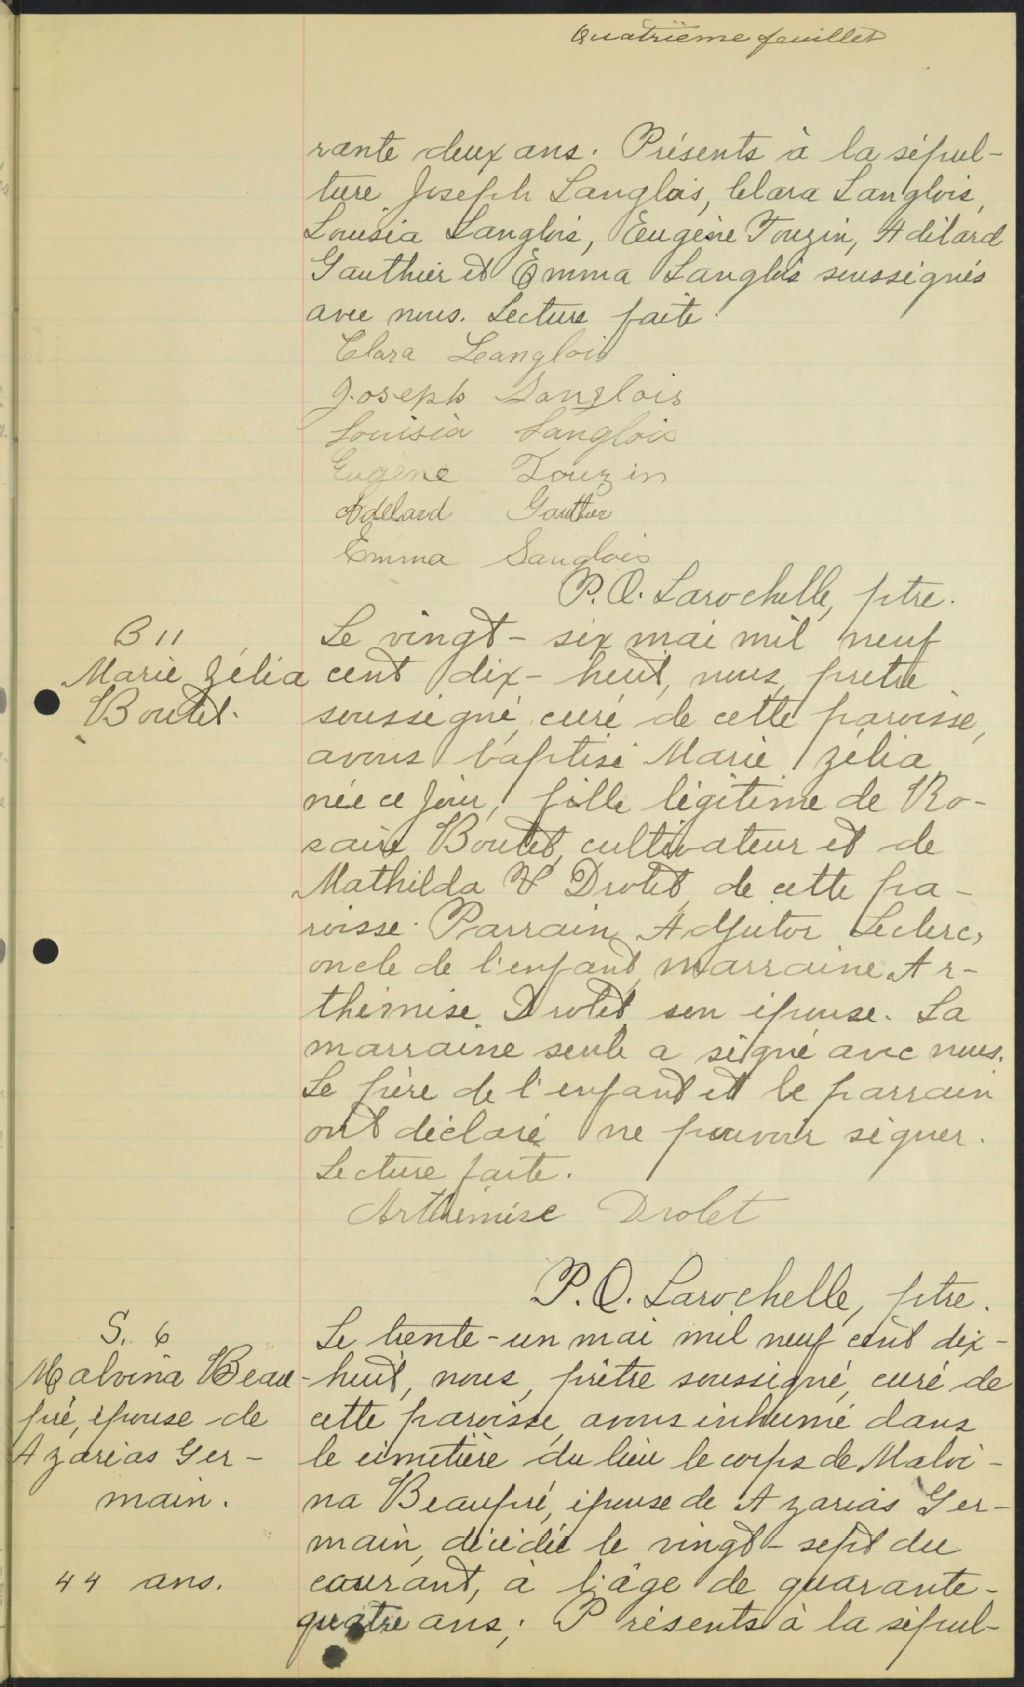 Quatrième feuillet
rante deux ans. Présents à la sépul-
ture Joseph Langlois, Clara Langlois,
Louisia Langlois, Eugène Touzin, Adélard
Gauthier et Emma Langlois soussignés
avec nous. Lecture faite.
Clara Langlois
Joseph Langlois
Louisia Langlois
Eugène Touzin
Adelard Gauthier
Emma Langlois
P.O. Larochelle, ptre.
B 11
Marie Zélia
Boutet.
Le vingt-six mai mil neuf
cent dix-huit, nous, prêtre
soussigné, curé de cette paroisse,
avons baptisé Marie Zélia
née ce jour, fille légitime de Ro-
saire Boutet, cultivateur et de
Mathilda Drolet, de cette pa-
roisse. Parrain Adjutor Leclerc,
oncle de l'enfant, marraine Ar-
thémise Drolet son épouse. La
marraine seule a signé avec nous.
Le père de l'enfant et le parrain
ont déclaré ne pouvoir signer.
Lecture faite.
Arthémise Drolet
P.O. Larochelle, ptre.
S. 6
Malvina Beau
pré, épouse de
Azarias Ger-
main.
44 ans.
Le trente-un mai mil neuf cent dix-
huit, nous, prêtre soussigné, curé de
cette paroisse, avons inhumé dans
le cimetière du lieu le corps de Malvi-
na Beaupré, épouse de Azarias Ger-
main, décédée le vingt-sept du
courant, à l'âge de quarante-
quatre ans; Présents à la sépul-